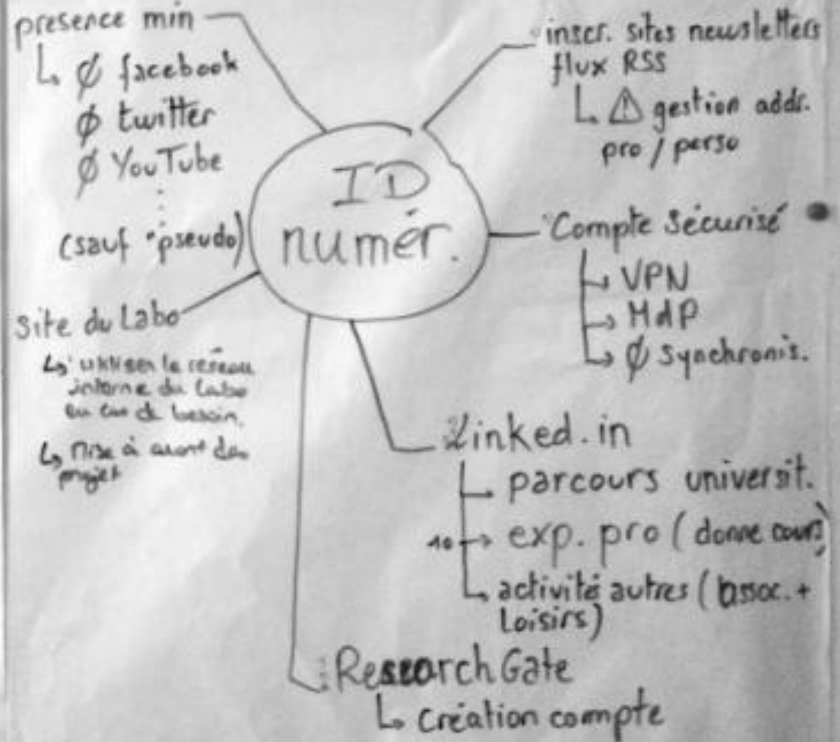 presence min
↳ ∅ facebook
∅ twitter
∅ YouTube
(sauf pseudo)
ID
numér.
inscr. sites newsletters
flux RSS
↳ ⚠ gestion addr.
pro / perso
Compte sécurisé
→ VPN
→ MdP
↳ ∅ synchronis.
Site du Labo
↳ utiliser le réseau
interne du labo
en cas de besoin.
↳ Mise à avant des
projet
Linked.in
parcours universit.
10 → exp. pro (donne cours)
↳ activité autres (assoc. +
Loisirs)
ResearchGate
↳ Création compte